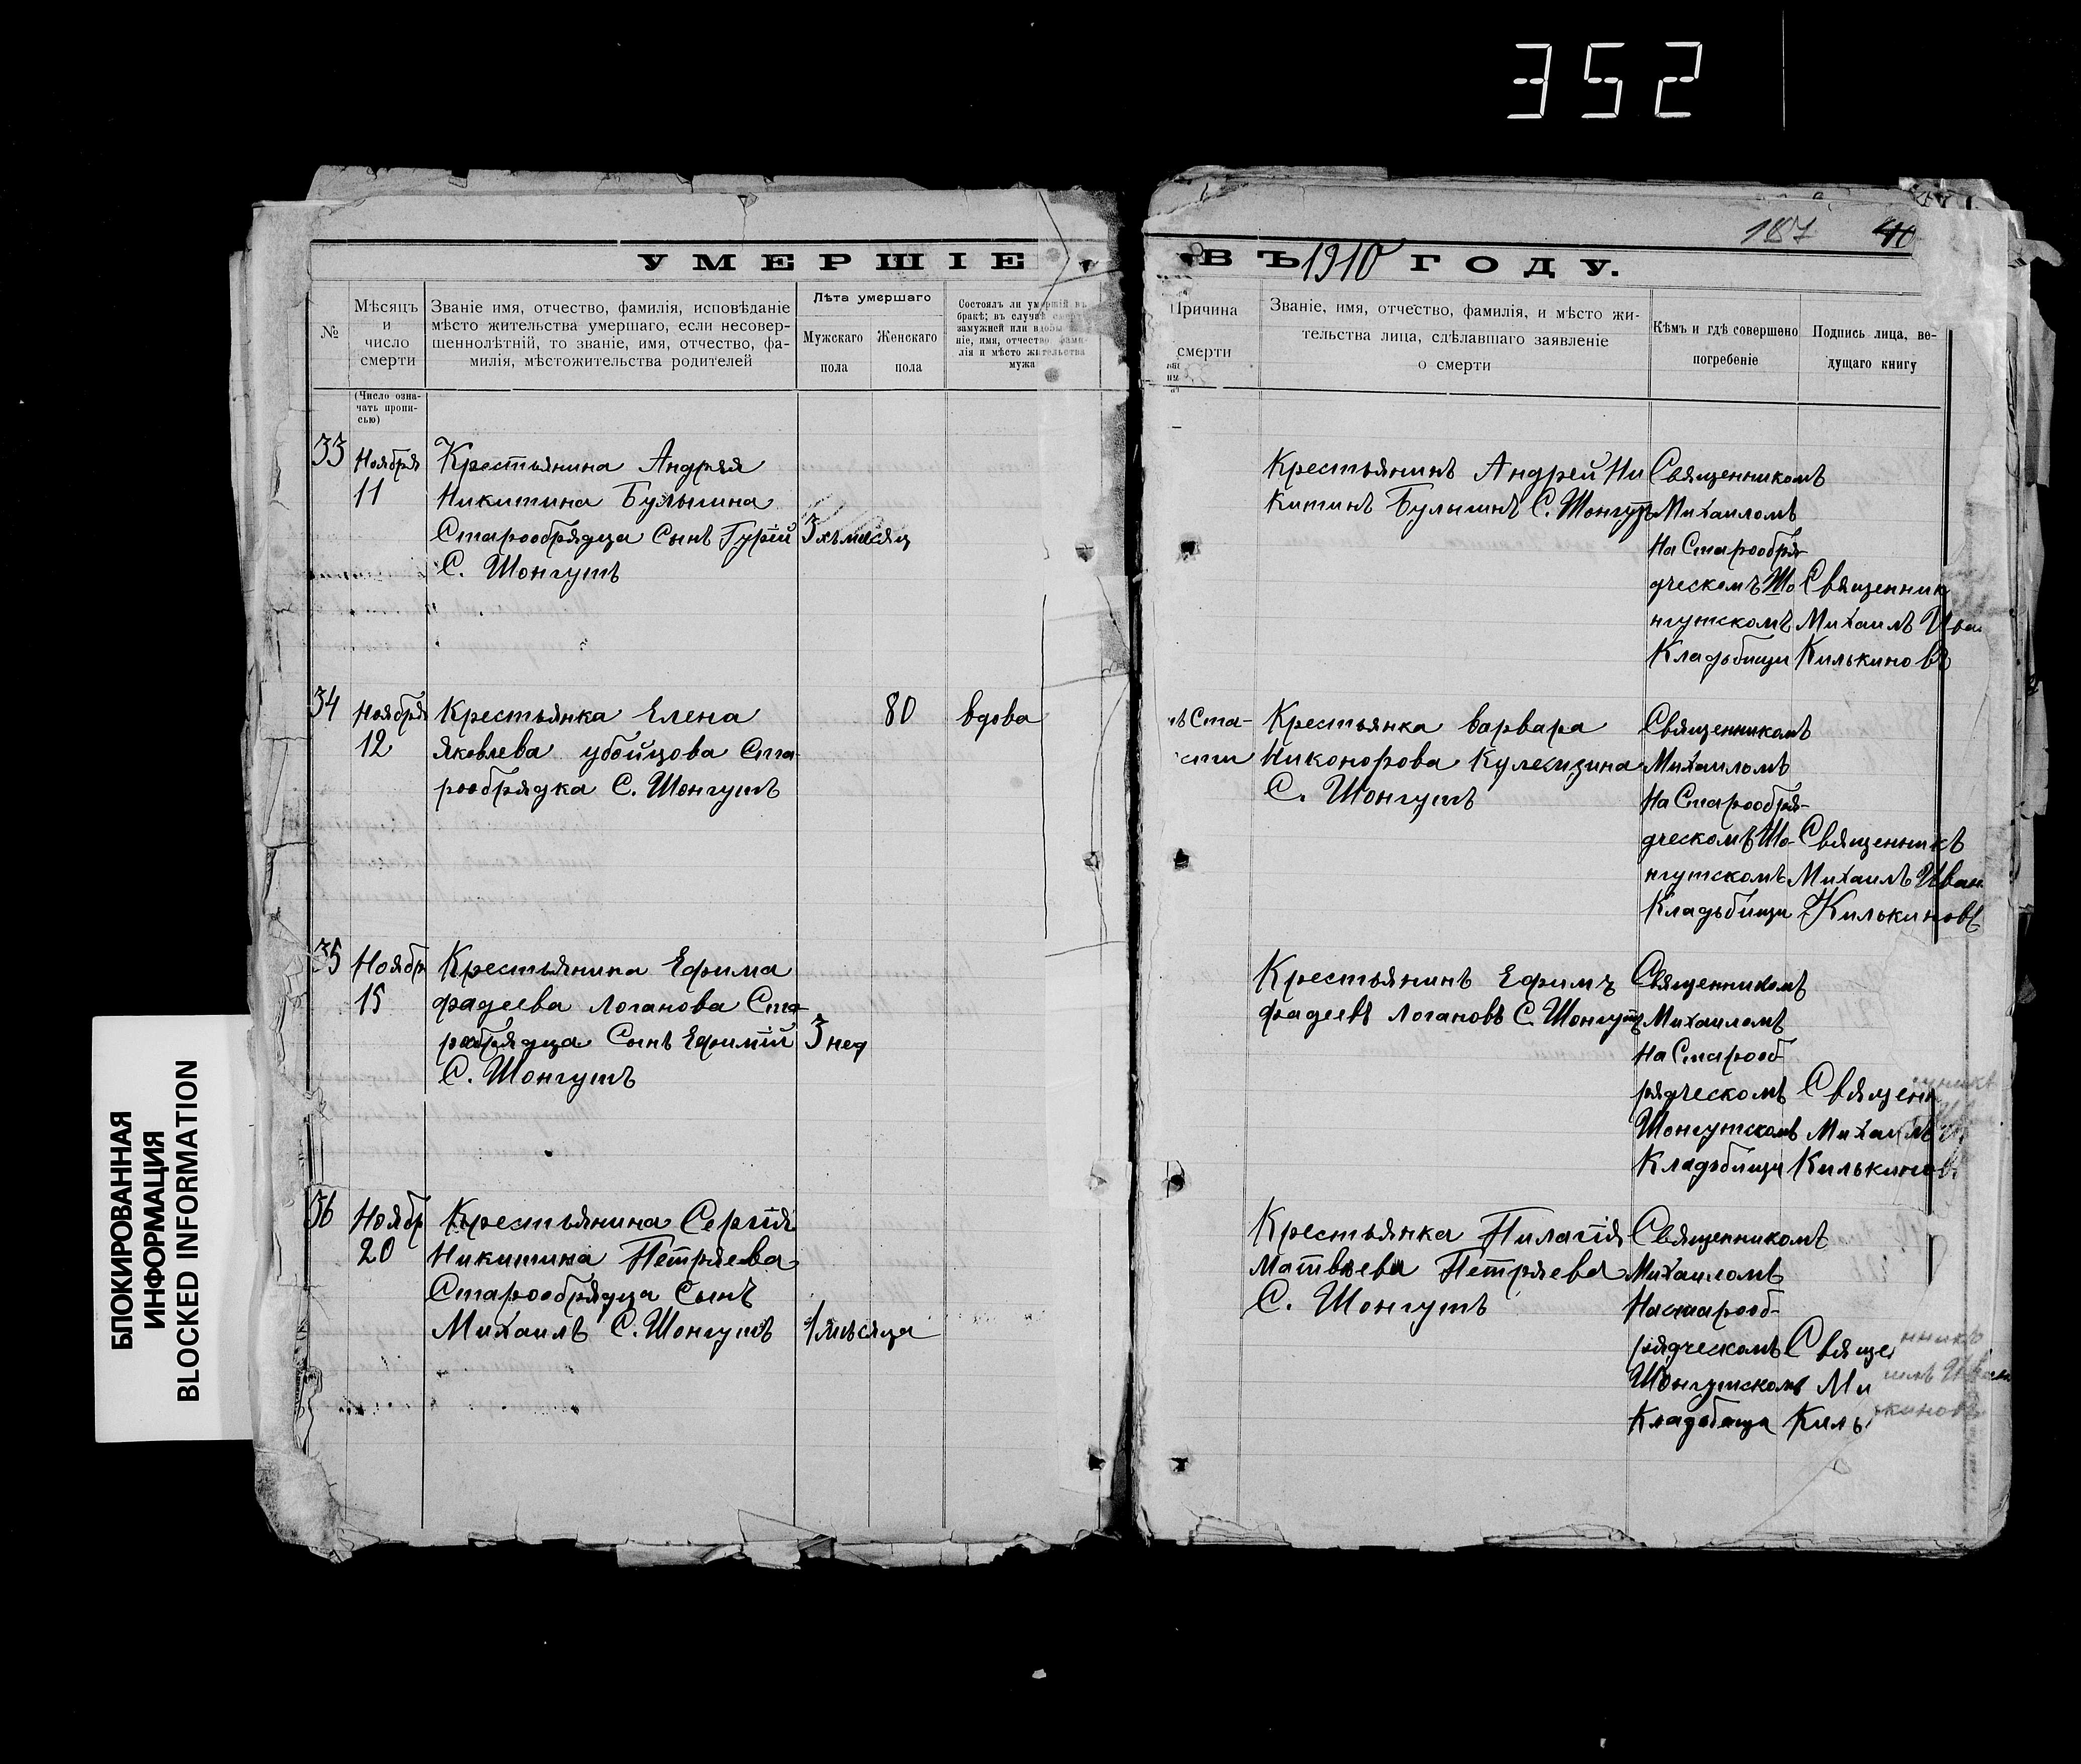 352
187 40
УМЕРШІЕ ВЪ 1910 ГОДУ.
№
Мѣсяцъ
и
число
смерти
(Число озна-
чать пропи-
сью)
Званіе имя, отчество, фамилія, исповѣданіе
мѣсто жительства умершаго, если несовер-
шеннолѣтній, то званіе, имя, отчество, фа-
милія, мѣстожительства родителей
Лѣта умершаго
Мужскаго
пола
Женскаго
пола
Состоялъ ли умершій въ
бракѣ; въ случаѣ смерти
замужней или вдовы
ніе, имя, отчество фами-
лія и мѣсто жительства
мужа
Причина
смерти
Званіе, имя, отчество, фамилія, и мѣсто жи-
тельства лица, сдѣлавшаго заявленіе
о смерти
Кѣмъ и гдѣ совершено
погребеніе
Подпись лица, ве-
дущаго книгу
33
Ноября
11
Крестьянина Андрея
Никитина Булыгина
Старообрядца Сынъ Гурій
С. Шонгутъ
3 хъ мѣсяц
Крестьянинъ Андрей Ни
китинъ Булыгинъ С. Шонгутъ
Священникомъ
Михаиломъ
На Старообря-
дческомъ Шо
нгутскомъ
Кладьбищи
Священник
Михаилъ Ива
Килькиновъ
34
Ноября
12
Крестьянка Елена
Яковлева убойцова Ста-
рообрядка С. Шонгутъ
80
вдова
ъ Ста-
сти
Крестьянка Варвара
Никонорова Кулемзина
С. Шонгутъ
Священникомъ
Михаиломъ
На Старообря-
дческомъ Шо-
нгутскомъ
Кладьбищи
Священникъ
Михаилъ Иван
Килькиновъ
35
Ноябр
15
Крестьянина Ефима
фадеева Логанова Ста-
рообрядца Сынъ Ефимій
С. Шонгутъ
3 нед
Крестьянинъ Ефимъ
фадеевъ Логановъ С. Шонгутъ
Священникомъ
Михаиломъ
На Старооб
рядческомъ
Шонгутскомъ
Кладьбищи
Священникъ
Михаилъ
Килькинов
36
Ноябр
20
Крестьянина Сергія
Никитина Петряева
Старообрядца Сынъ
Михаилъ С. Шонгутъ
1 мѣсяца
Крестьянка Пилагія
Матвѣева Петряева
С. Шонгутъ
Священникомъ
Михаиломъ
На старооб-
рядческомъ
Шонгутскомъ
Кладьбища
Священникъ
Михаилъ Иван
Килькиновъ
БЛОКИРОВАННАЯ
ИНФОРМАЦИЯ
BLOCKED INFORMATION